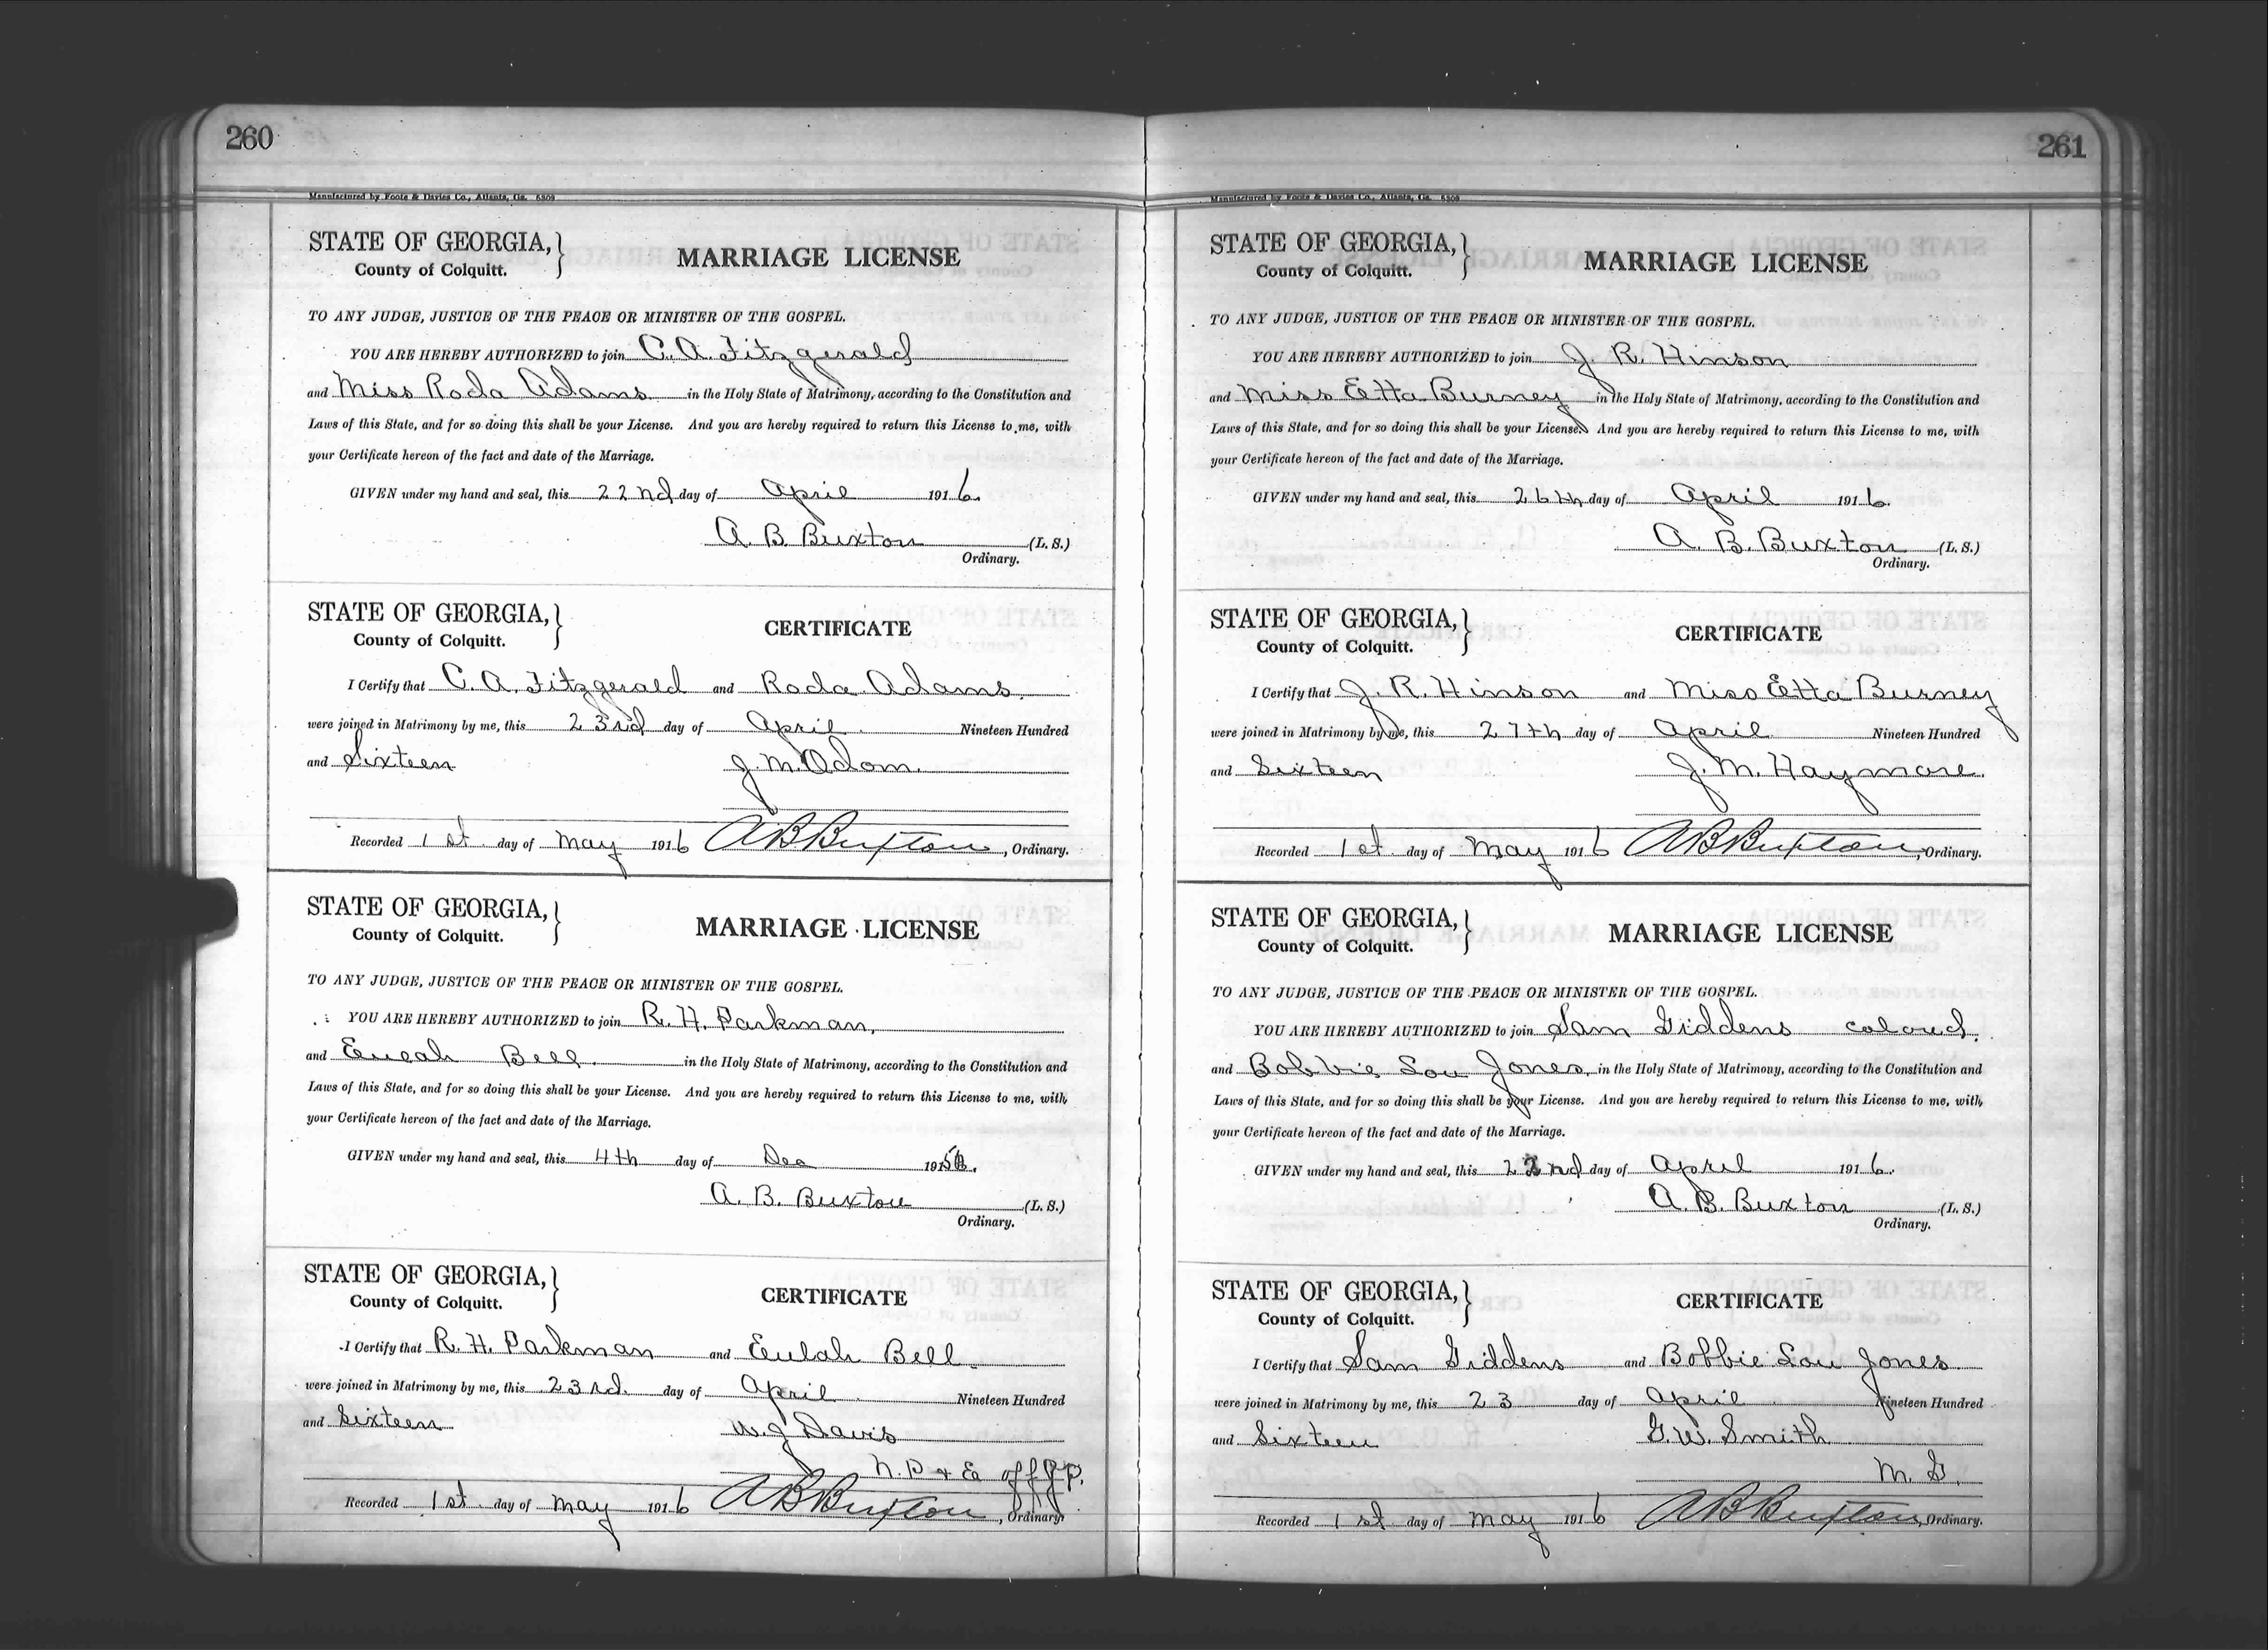 260
Manufactured by Foote & Davies Co., Atlanta, Ga. 5309
STATE OF GEORGIA,
County of Colquitt.
MARRIAGE LICENSE
TO ANY JUDGE, JUSTICE OF THE PEACE OR MINISTER OF THE GOSPEL.
YOU ARE HEREBY AUTHORIZED to join C. A. Fitzgerald
and Miss Roda Adams in the Holy State of Matrimony, according to the Constitution and
Laws of this State, and for so doing this shall be your License. And you are hereby required to return this License to me, with
your Certificate hereon of the fact and date of the Marriage.
GIVEN under my hand and seal, this 22nd day of April 1916.
A B. Buxton (L. S.)
Ordinary.
STATE OF GEORGIA,
County of Colquitt.
CERTIFICATE
I Certify that C. A. Fitzgerald and Roda Adams
were joined in Matrimony by me, this 23rd day of April Nineteen Hundred
and Sixteen J. M. Odom.
Recorded 1st day of May 1916 A B Buxton, Ordinary.
STATE OF GEORGIA,
County of Colquitt.
MARRIAGE LICENSE
TO ANY JUDGE, JUSTICE OF THE PEACE OR MINISTER OF THE GOSPEL.
YOU ARE HEREBY AUTHORIZED to join R. H. Parkman,
and Eulah Bell. in the Holy State of Matrimony, according to the Constitution and
Laws of this State, and for so doing this shall be your License. And you are hereby required to return this License to me, with
your Certificate hereon of the fact and date of the Marriage.
GIVEN under my hand and seal, this 4th day of Dec 1915.
A. B. Buxton (L. S.)
Ordinary.
STATE OF GEORGIA,
County of Colquitt.
CERTIFICATE
I Certify that R. H. Parkman and Eulah Bell.
were joined in Matrimony by me, this 23rd. day of April Nineteen Hundred
and Sixteen W. J Davis
N. P & Ex off J. P.
Recorded 1st day of May 1916 A B Buxton, Ordinary
261
Manufactured by Foote & Davies Co., Atlanta, Ga. 5309
STATE OF GEORGIA,
County of Colquitt.
MARRIAGE LICENSE
TO ANY JUDGE, JUSTICE OF THE PEACE OR MINISTER OF THE GOSPEL.
YOU ARE HEREBY AUTHORIZED to join J. R. Hinson
and Miss Etta Burney in the Holy State of Matrimony, according to the Constitution and
Laws of this State, and for so doing this shall be your License. And you are hereby required to return this License to me, with
your Certificate hereon of the fact and date of the Marriage.
GIVEN under my hand and seal, this 26th day of April 1916.
A. B. Buxton (L. S.)
Ordinary.
STATE OF GEORGIA,
County of Colquitt.
CERTIFICATE
I Certify that J. R. Hinson and Miss Etta Burney
were joined in Matrimony by me, this 27th day of April Nineteen Hundred
and Sixteen J. M. Haymore.
Recorded 1st day of May 1916 A B Buxton, Ordinary.
STATE OF GEORGIA,
County of Colquitt.
MARRIAGE LICENSE
TO ANY JUDGE, JUSTICE OF THE PEACE OR MINISTER OF THE GOSPEL.
YOU ARE HEREBY AUTHORIZED to join Sam Giddens colored.
and Bobbie Lou Jones, in the Holy State of Matrimony, according to the Constitution and
Laws of this State, and for so doing this shall be your License. And you are hereby required to return this License to me, with
your Certificate hereon of the fact and date of the Marriage.
GIVEN under my hand and seal, this 22nd day of April 1916.
A. B. Buxton (L. S.)
Ordinary.
STATE OF GEORGIA,
County of Colquitt.
CERTIFICATE
I Certify that Sam Giddens and Bobbie Lou Jones
were joined in Matrimony by me, this 23 day of April Nineteen Hundred
and Sixteen G. W. Smith
M. G.
Recorded 1st day of May 1916 A B Buxton, Ordinary.